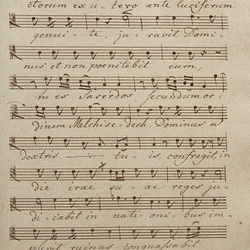 ctorum ex u- tero ante luciferum
genui- te, ju- ravit Domi-
nus et non poenitebit eum,
tu es Sacerdos secundum or-
dinem Melchise- dech, Dominus a
dextris tu- is, confregit in
die irae su- ae reges ju-
di- cabit in nati- oni- bus im-
plevit ruinas conquassabit